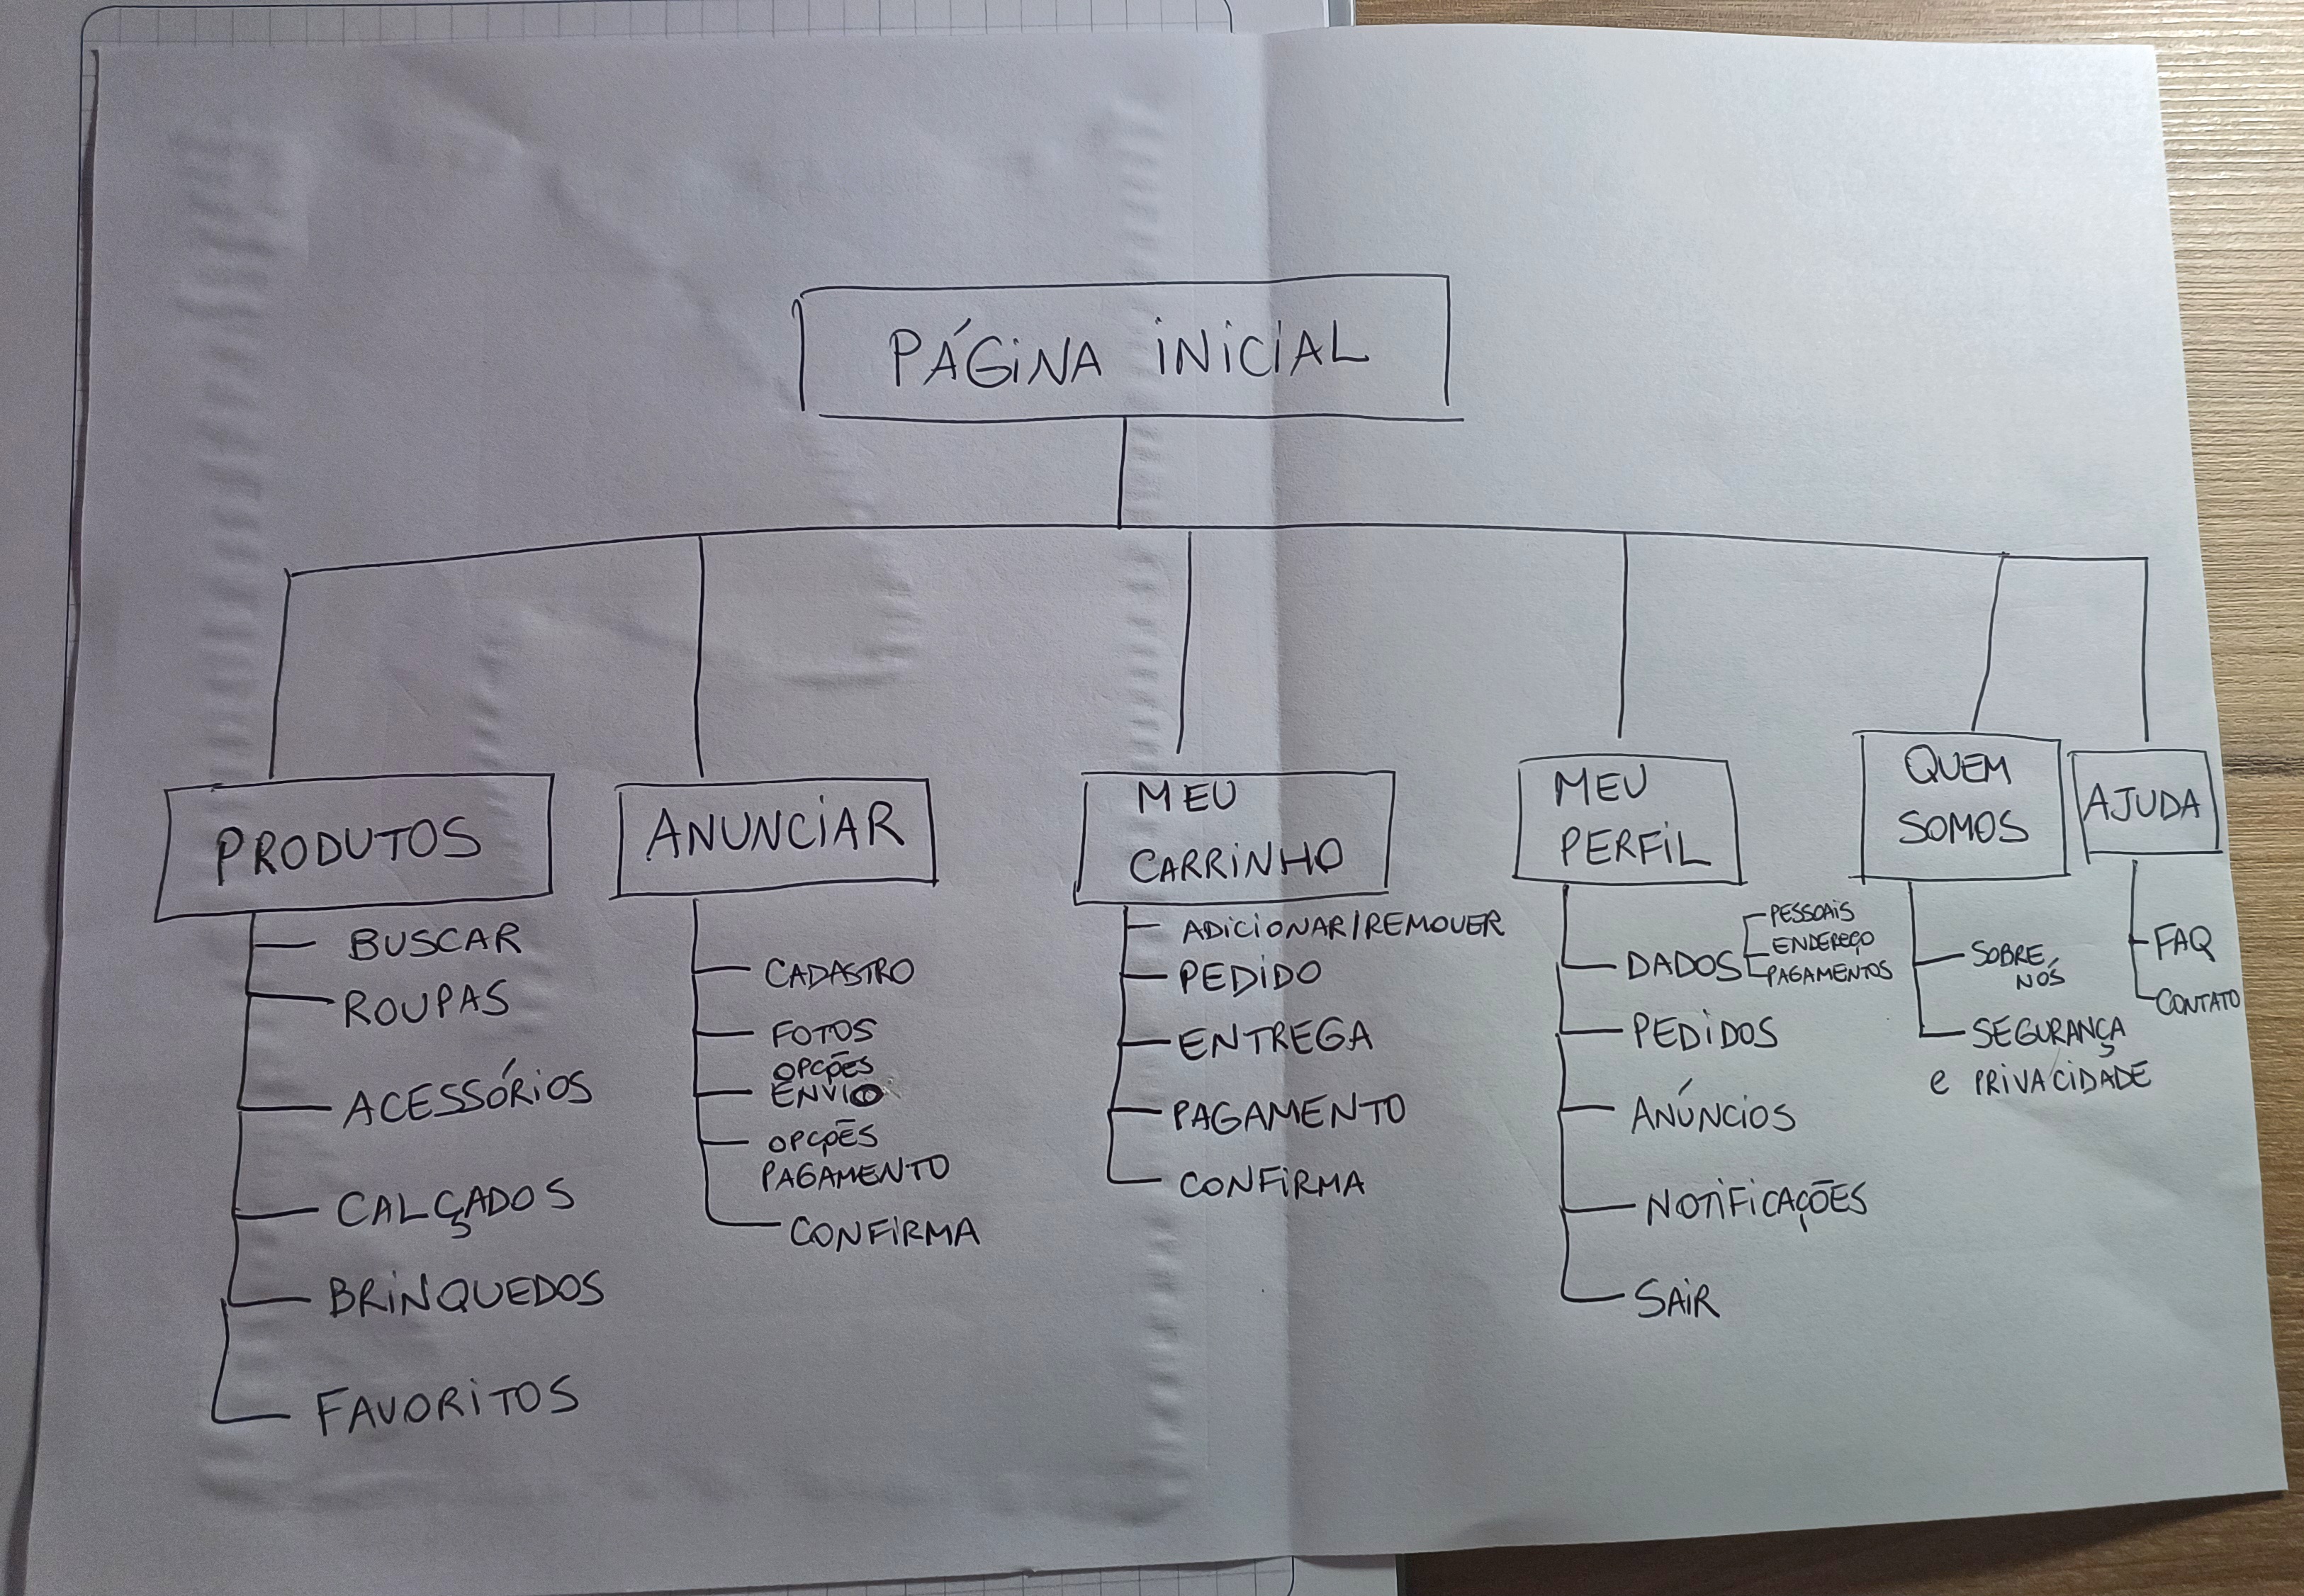 PÁGINA INICIAL
PRODUTOS
BUSCAR
ROUPAS
ACESSÓRIOS
CALÇADOS
BRINQUEDOS
FAVORITOS
ANUNCIAR
CADASTRO
FOTOS
OPÇÕES
ENVIO
OPÇÕES
PAGAMENTO
CONFIRMA
MEU
CARRINHO
ADICIONAR/REMOVER
PEDIDO
ENTREGA
PAGAMENTO
CONFIRMA
MEU
PERFIL
DADOS
PESSOAIS
ENDEREÇO
PAGAMENTOS
PEDIDOS
ANÚNCIOS
NOTIFICAÇÕES
SAIR
QUEM
SOMOS
SOBRE
NÓS
SEGURANÇA
e PRIVACIDADE
AJUDA
FAQ
CONTATO